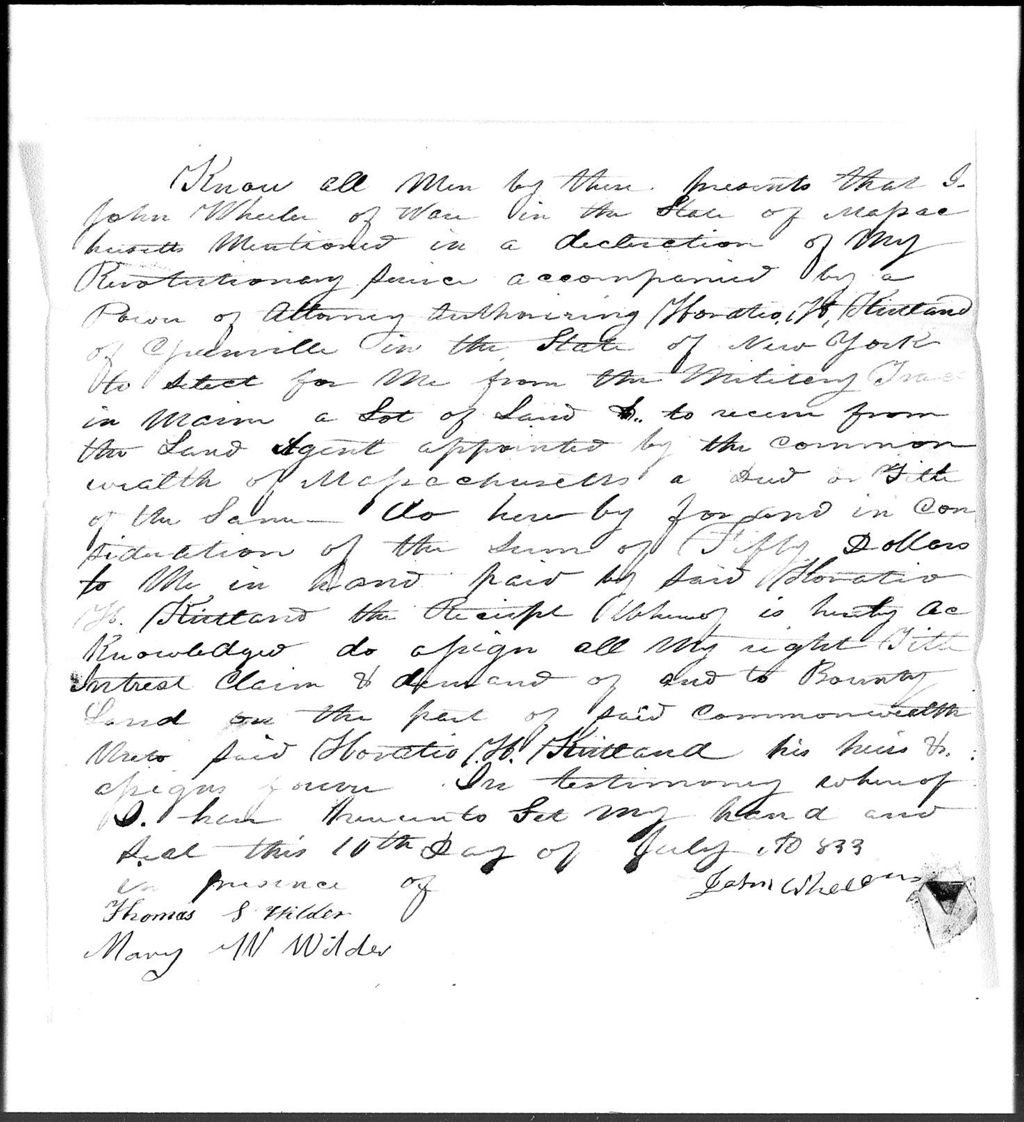 Know all Men by these presents that I
John Wheeler of Ware in the State of Massac
husetts Mentioned in a declaration of My
Revolutionary Service accompanied by a
Power of Attorney Authorizing Horatio, H, Kirtland
of Greenville in the State of New York
to select for Me from the Military Tract
in Maine a Lot of Land &.. to receive from
the Land Agent appointed by the Common
wealth of Massachusetts a Deed or Title
of the Same — do here by for and in Con
sideration of the sum of Fifty Dollars
to Me in hand paid by said Horatio
H. Kirtland the Receipt Whereof is hereby ac
knowledged do assign all My right Title
Intrest Claim & demand of and to Bounty
Land on the part of said Commonwealth
Unto said Horatio, H. Kirtland his heirs &.
assigns forever In testimony whereof
I. have hereunto Set My hand and
Seal this 10th Day of July AD 833
in presence of John Wheeler
Thomas S Wilder
Mary W Wilder